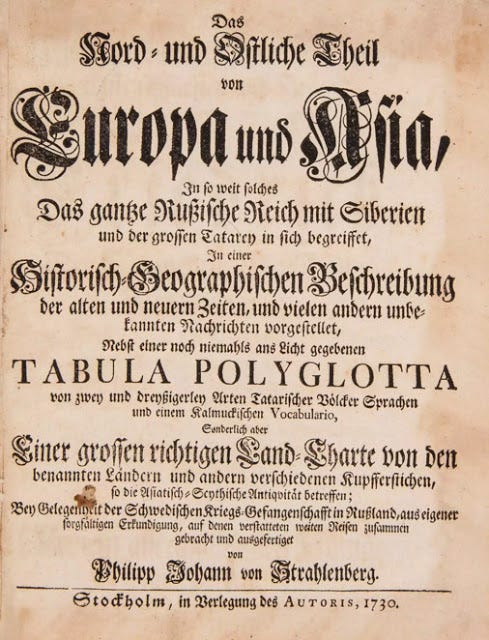 Das
Nord- und Ostliche Theil
von
Europa und Asia,
In so weit solches
Das gantze Rußische Reich mit Siberien
und der grossen Tatarey in sich begreiffet,
In einer
Historisch-Geographischen Beschreibung
der alten und neuern Zeiten, und vielen andern unbe-
kannten Nachrichten vorgestellet,
Nebst einer noch niemahls ans Licht gegebenen
TABULA POLYGLOTTA
von zwey und dreyßigerley Arten Tatarischer Völcker Sprachen
und einem Kalmuckischen Vocabulario,
Sonderlich aber
Einer grossen richtigen Land-Charte von den
benannten Ländern und andern verschiedenen Kupfferstichen,
so die Asiatisch-Scythische Antiqvität betreffen;
Bey Gelegenheit der Schwedischen Kriegs-Gefangenschafft in Rußland, aus eigener
sorgfältigen Erkundigung, auf denen verstatteten weiten Reisen zusammen
gebracht und ausgefertiget
von
Philipp Johann von Strahlenberg.
Stockholm, in Verlegung des AUTORIS, 1730.